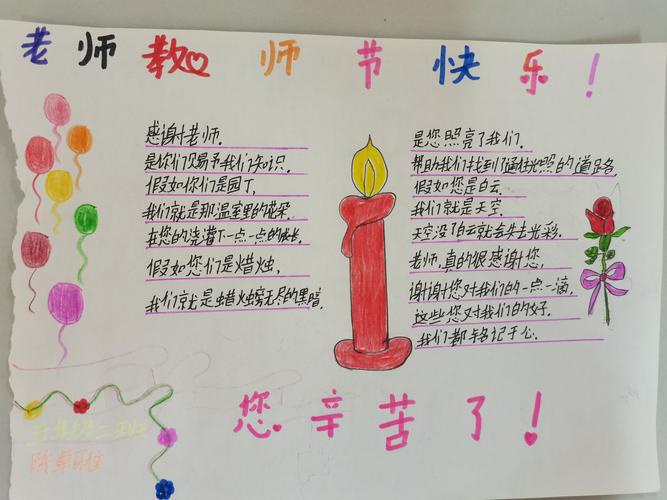 老师教师节快乐！
感谢老师，
是你们赐予我们知识。
假如你们是园丁，
我们就是那温室里的花朵，
在您的浇灌下一点一点的成长。
假如您们是蜡烛，
我们就是蜡烛旁无尽的黑暗，
是您照亮了我们，
帮助我们找到了通往光照的道路。
假如您是白云，
我们就是天空，
天空没了白云就会失去光彩。
老师，真的很感谢您，
谢谢您对我们的一点一滴，
这些您对我们的好，
我们都铭记于心。
您辛苦了！
二班